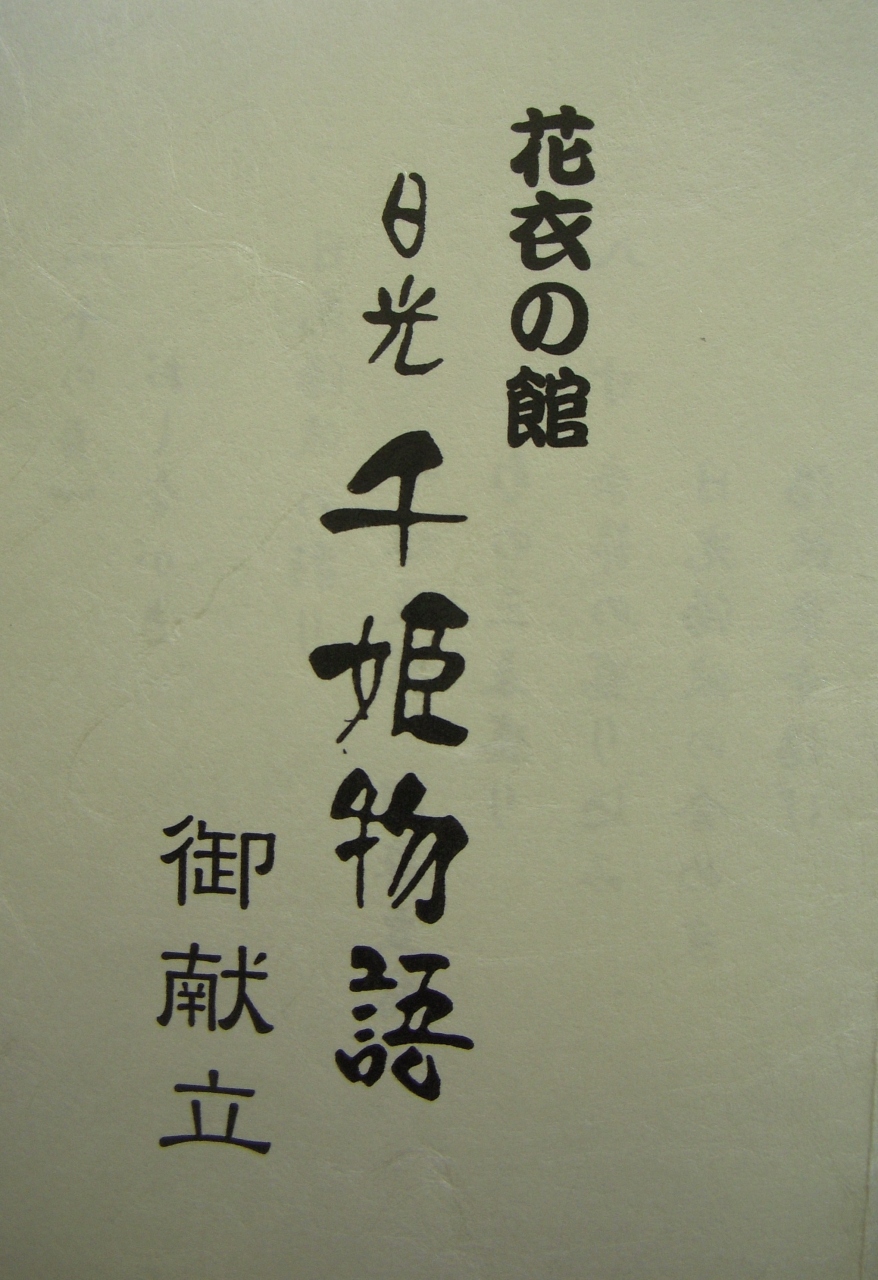 花衣の館
日光 千姫物語
御献立